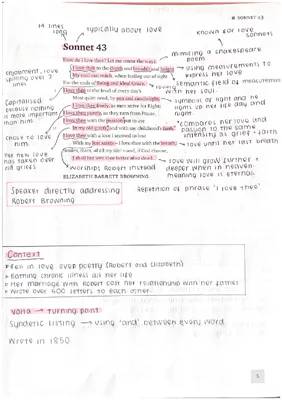 # SONNET 43
14 lines long
typically about love
known for love sonnets
Sonnet 43
mimicking a shakespeare poem
How do I love thee? Let me count the ways!
I love thee to the depth and breadth and height
My soul can reach, when feeling out of sight
For the ends of Being and ideal Grace.
I love thee to the level of every day's
Most quiet need, by sun and candlelight.
I love thee freely, as men strive for Right;
I love thee purely, as they turn from Praise.
I love thee with the passion put to use
In my old griefs, and with my childhood's faith.
I love thee with a love I seemed to lose
With my lost saints, – I love thee with the breath,
Smiles, tears, of all my life! – and, if God choose,
I shall but love thee better after death.
ELIZABETH BARRETT BROWNING
enjambment, love spilling over 3 lines
using measurements to express her love
semantic field of measurement
with her soul.
Capitalised
nothing is more important than him
symbol of light and he lights up her life day and night
chose to love him
*compares her love and passion to the same intensity as grief + faith
love until her last breath
her new love has taken over old griefs
worships Robert instead
love will grow further + deeper when in heaven meaning love is eternal
Speaker directly addressing Robert Browning
Repetition of phrase 'I love thee'
Context
Fell in love over poetry (Robert and Elizabeth)
Battling chronic illness all her life
Her marriage with Robert cost her relationship with her father
Wrote over 600 letters to each other
Volta → turning point
Syndetic listing → using 'and' between every word
Wrote in 1850
5